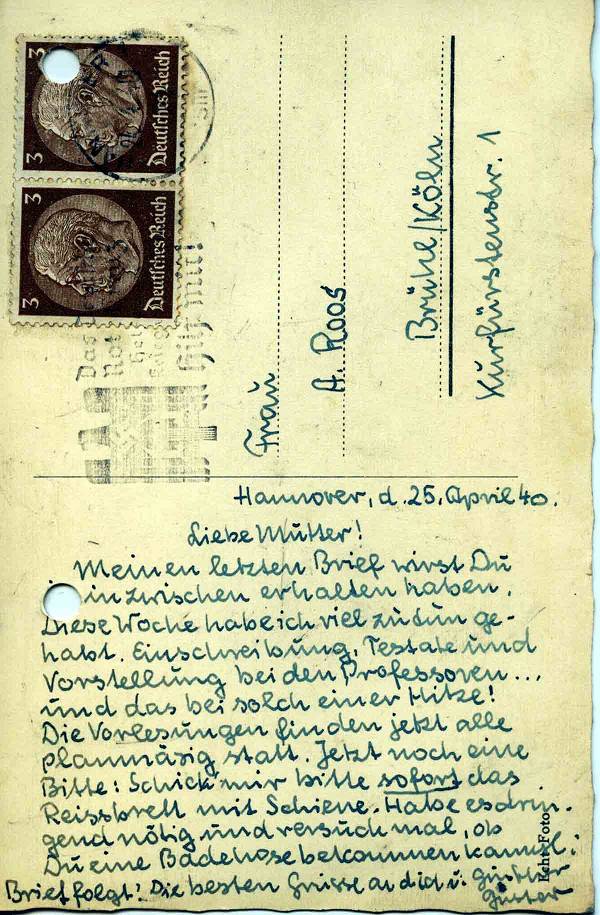 3
Deutsches Reich
3
Deutsches Reich
Das
Rot
hilf mit!
Frau
A. Roos
Brühl/Köln
Kurfürstenstr. 1
Hannover, d. 25. April 40.
Liebe Mutter!
Meinen letzten Brief wirst Du
inzwischen erhalten haben.
Diese Woche habe ich viel zu tun ge-
habt. Einschreibung, Testate und
Vorstellung bei den Professoren...
und das bei solch einer Hitze!
Die Vorlesungen finden jetzt alle
planmäsig statt. Jetzt noch eine
Bitte: Schick' mir bitte sofort das
Reissbrett mit Schiene. Habe es drin-
gend nötig und versuch mal, ob
Du eine Badehose bekommen kannst.
Brief folgt! Die besten Grüsse an dich u.
Echt Foto